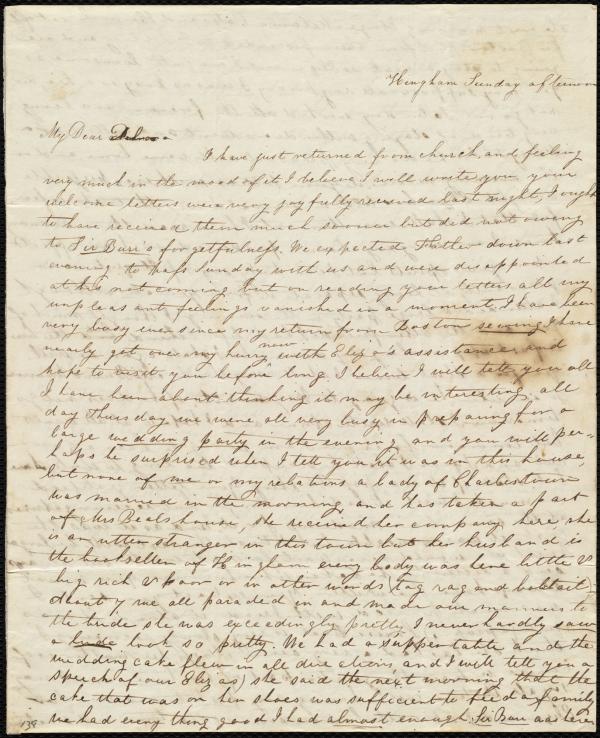 Hingham Sunday afternoon
My Dear
I have just returned from church, and feeling
very much in the mood of it I believe I will write you, your
welcome letters were very joyfully received last night, I ought
to have received them much sooner but did not owing
to Sir Burr's forgetfulness. We expected Father down last
evening to pass Sunday with us and were disappointed
at his not coming but on reading your letters all my
unpleasant feelings vanished in a moment. I have been
very busy ever since my return from Boston sewing, I have
nearly got over my hurry now with Eliza's assistance and
hope to visit you before long. I believe I will tell you all
I have been about thinking it may be interesting, all
day Thursday we were all very busy in preparing for a
large wedding party in the evening, and you will per=
haps be surprised when I tell you it was in this house,
but none of me or my relations a lady of Charlestown
was married in the morning, and has taken a part
of Mrs Beals house, she received her company here, she
is an utter stranger in this town but her husband is
the bookseller of Hingham every body was here little &
big rich & poor or in other words (tag rag and bobtail).
about 7 we all paraded in and made our manners to
the bride she was exceedingly pretty, I never hardly saw
a bride look so pretty. We had a supper table and the
wedding cake flew in all directions, and I will tell you a
speech of our Elizas) she said the next morning that the
cake that was on her shoes was sufficient to feed a family
we had every thing good I had almost enough. Sir Burr was here
138